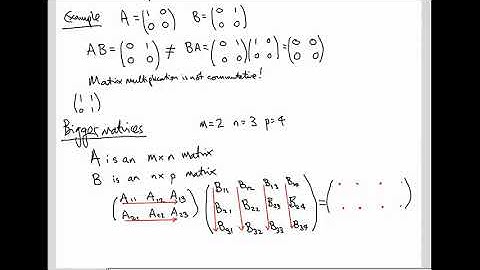 Example A = (1 0 / 0 0) B = (0 1 / 0 0)
AB = (0 1 / 0 0) ≠ BA = (0 1 / 0 0)(1 0 / 0 0) = (0 0 / 0 0)
Matrix multiplication is not commutative!
(1 1 / 0 1)
Bigger matrices m=2 n=3 p=4
A is an m×n matrix
B is an n×p matrix
(A11 A12 A13 / A21 A22 A23) (B11 B12 B13 B14 / B21 B22 B23 B24 / B31 B32 B33 B34) = (. . . . / . . . .)